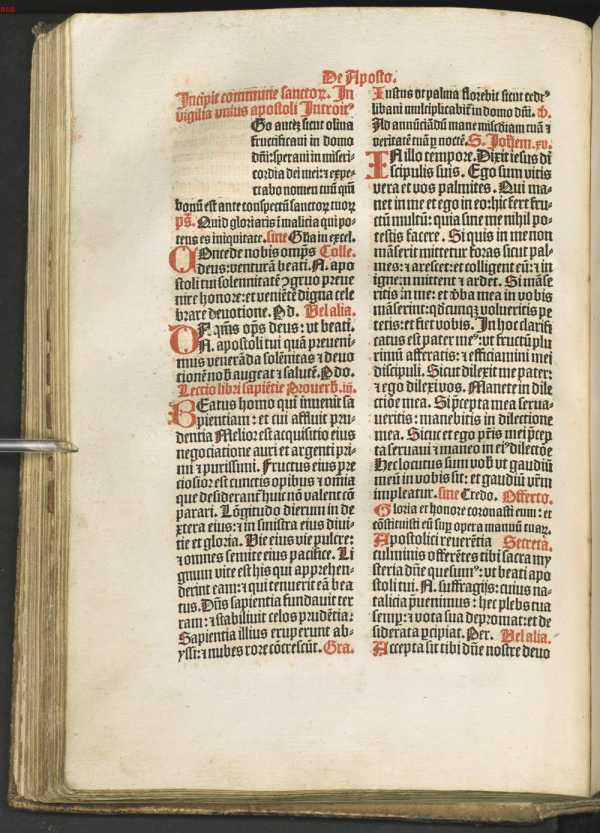 De Aposto.
Incipit commune sanctoꝝ. In
vigilia vnius apostoli Introitꝰ
Go autē sicut oliua
fructificaui in domo
dñi: speraui in miseri-
cordia dei mei: ⁊ expe-
ctabo nomen tuū qm̄
bonū est ante conspectū sanctoꝝ tuoꝝ
ps̄. Quid gloriaris ī malicia qui po-
tens es iniquitate. sine Gl̓ia in excel.
COncede nobis om̄ps Colle.
deus: venturā beati. N. apo
stoli tui solennitatē ↄgruo preue
nire honore: et veniētē digna cele
brare deuotione. P̱ d. Vel alia.
DA q̄ms op̄s deus: vt beati.
N. apostoli tui quā preueni-
mus venerāda solēnitas ⁊ deuo
tionē nob̄ augeat ⁊ salutē. P̱ do.
Lectio libri sapiētie Prouerb̄. iij.
BEatus homo qui inuenit sa
pientiam: et cui affluit pru-
dentia Melior est acquisitio eius
negociatione auri et argenti pri-
mi ⁊ purissimi. Fructus eius pre
ciosior est cunctis opibus ⁊ om̄ia
que desiderant̄ huic nō valent cō
parari. Lōgitudo dierum in de
xtera eius: ⁊ in sinistra eius diui-
tie et gloria. Vie eius vie pulcre:
⁊ omnes semite eius pacifice. Li
gnum vite est his qui apprehen-
derint eam: ⁊ qui tenuerit eā bea
tus. Dn̄s sapientia fundauit ter
ram: ⁊ stabiliuit celos prudētia:
Sapientia illius eruperunt ab-
yssi: ⁊ nubes rore cōcrescūt. Gra.
Iustus vt palma florebit sicut cedrꝰ
libani multiplicabit̄ in domo dn̄i. v̄.
Ad annūciādū mane misc̄diam tuā ⁊
veritatē tuā ꝑ noctē. S. Joh̄em. xv.
IN illo tempore. Dixit iesus di
scipulis suis. Ego sum vitis
vera et vos palmites. Qui ma-
net in me et ego in eo: hic fert fru-
ctū multū: quia sine me nihil po-
testis facere. Si quis in me non
māserit mittetur foras sicut pal-
mes: ⁊ arescet: et colligent eū: ⁊ in
ignem mittent ⁊ ardet. Si māse
ritis in me: et v̄ba mea in vobis
māserint: qd̄cunqꝫ volueritis pe
tetis: et fiet vobis. In hoc clarifi
catus est pater meꝰ: vt fructū plu
rimū afferatis: ⁊ efficiamini mei
discipuli. Sicut dilexit me pater:
⁊ ego dilexi vos. Manete in dile
ctiōe mea. Si p̄cepta mea serua-
ueritis: manebitis in dilectione
mea. Sicut et ego pr̄is mei p̄cep
ta seruaui ⁊ maneo in eiꝰ dilectōe
Hec locutus sum vob̄ vt gaudiū
meū in vobis sit: et gaudiū vr̄m
impleatur. sine Credo. Offerto.
Gloria et honore coronasti eum: et
cōstituisti eū suꝑ opera manuū tuaꝝ.
Apostolici reuerētia Secreta.
culminis offerētes tibi sacra my
steria dn̄e quesumꝰ: vt beati apo
stoli tui. N. suffragijs: cuius na-
talicia p̄uenimus: hec plebs tua
semꝑ: ⁊ vota sua depromat: et de
siderata ꝑcipiat. Per. Vel alia.
Accepta sit tibi dn̄e nostre deuo